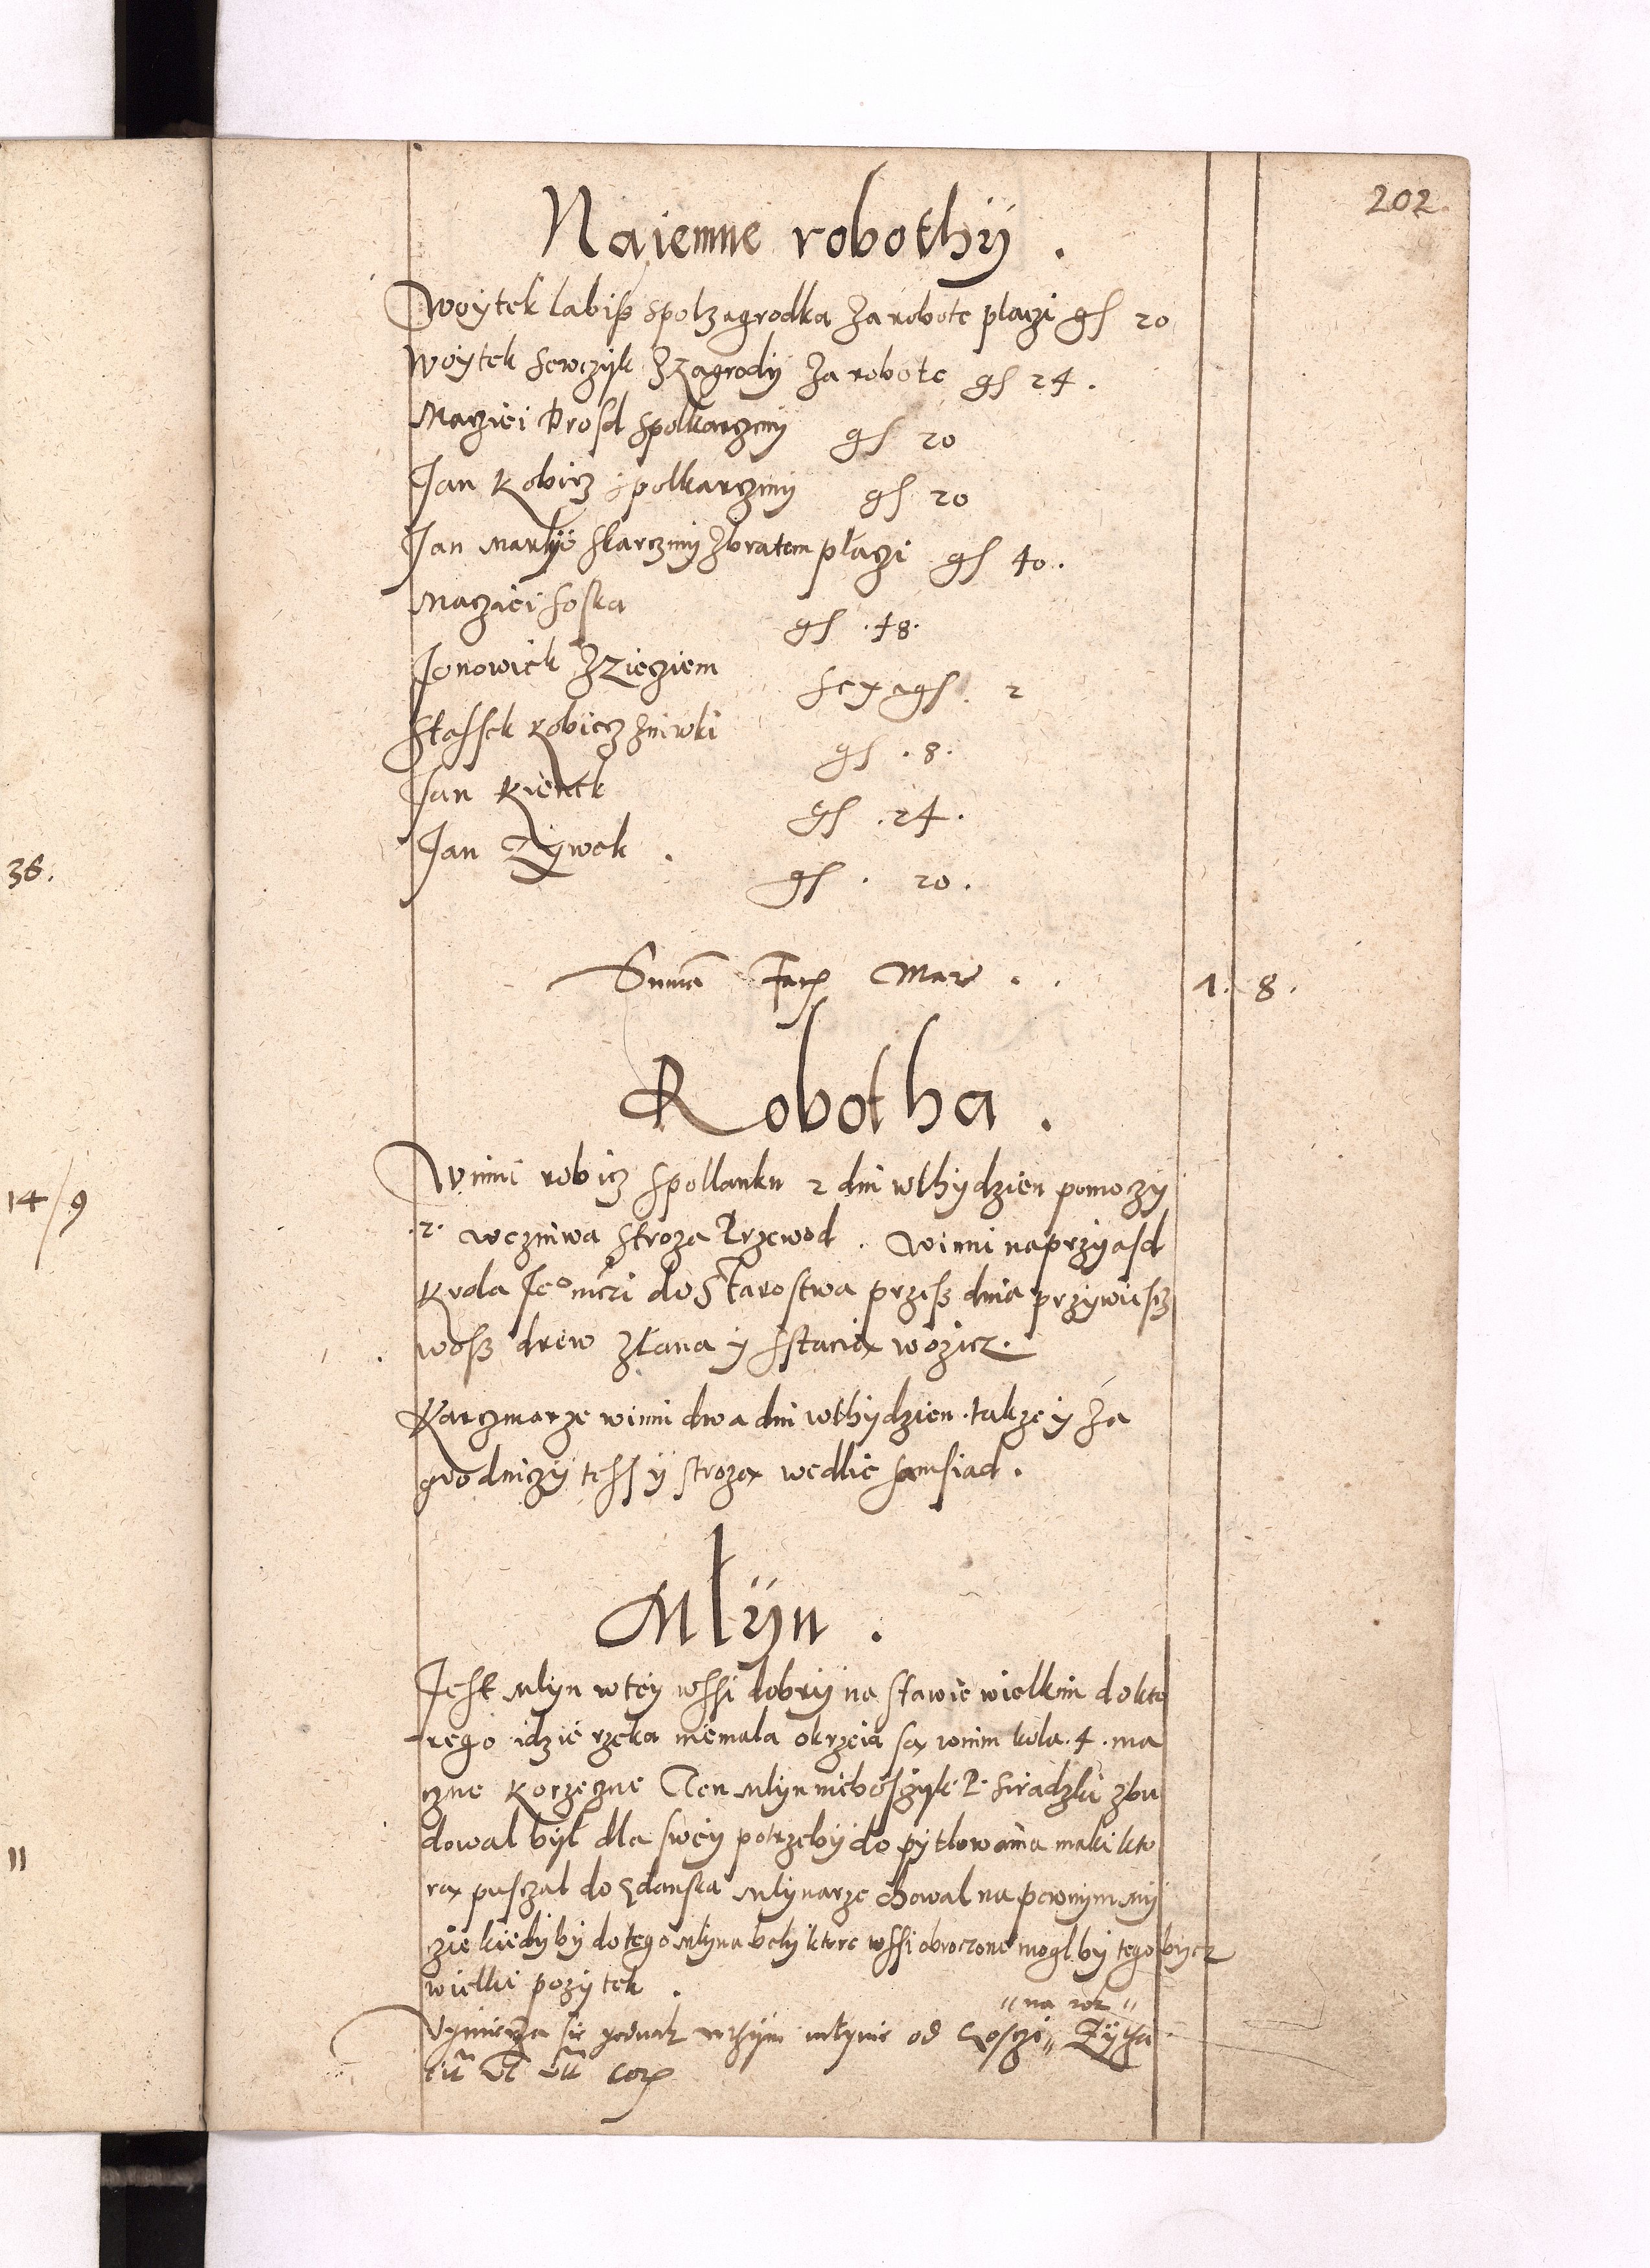 202.
Naiemne robothy .
Woytek Labiss spolzagrodka za robote placzi gs 20
Woytek Sewczyk z zagrody za robote gs 24 .
Macziei Drosd spolkarczmy gs 20
Jan Kobicz spolkarczmy gs 20
Jan skarczmy zbratem płaczi gs 40 .
Macziei soska gs . 48 .
Jonowiek z zieziem sexags . 2
Stassek Kobicz zniwki gs . 8 .
Jan Kientk gs . 24 .
Jan Zywok . gs . 20 .
Suma Mar . . 1 . 8 .
Robotha .
Winni robicz spollanku 2 dni wthydzien pomoczy
. 2 . wczniwa stroza . winni naprzyasd
Krola Jeº mczi do Starostwa przess dnia przywiescz
woss drew złana y sstaciax wozicz .
Karczmarze winni dwa dni wthydzien . takze y za
grodniczy tess y strozax wedlie samsiad .
Młyn .
Jest młyn wtey wssi dobry na stawie wielkim do kto
rego idzie rzeka niemala okrzeia sax wnim kola . 4 . ma
czne korzeczne Ten młyn nieboszczyk P . Siradzki zbu
dowal był dla swey potrzeby do pytlowania maki kto
rax pusczal do Gdanska młynarze chowal na pewnym my
zie kiedy by do tego młyna bely ktore wssi obroczone mogl by tego bycz
wielki pozytek .
" na rok "
Vymierza sie jednak wthym młynie od Gosczi " Zytha
36 .
14 / 9
11